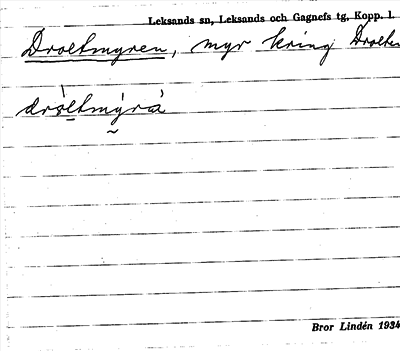 Leksands sn, Leksands och Gagnefs tg, Kopp. l.
Droltmyren, myr kring
dròltmýrà
Bror Lindén 1934